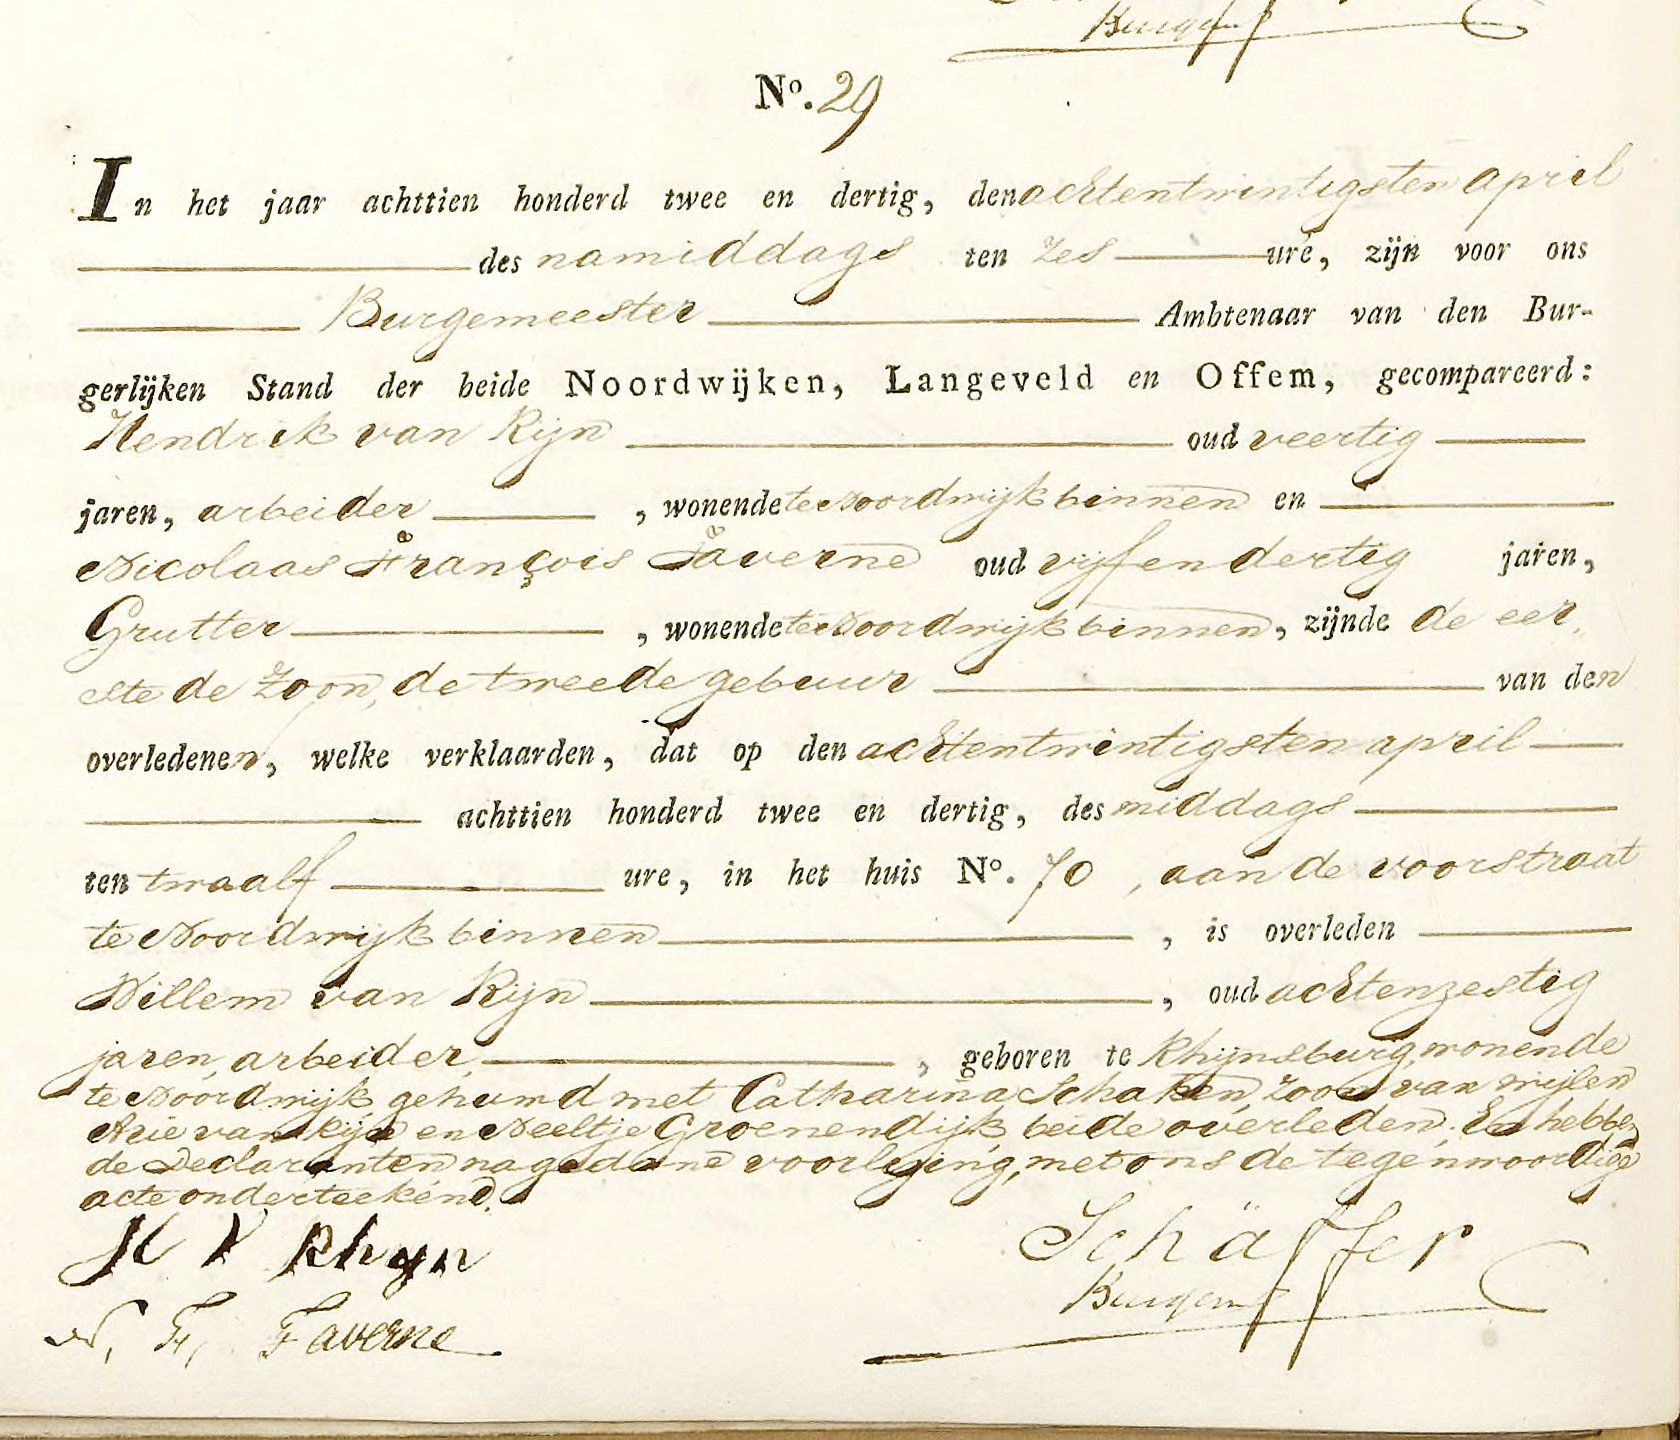 Burgem
No. 29
In het jaar achttien honderd twee en dertig, den achtentwintigsten april
des namiddags ten zes ure, zijn voor ons
Burgemeester Ambtenaar van den Bur-
gerlijken Stand der beide Noordwijken, Langeveld en Offem, gecompareerd:
Hendrik van Rijn oud veertig
jaren, arbeider, wonende te Noordwijk binnen en
Nicolaas François Faverne oud vijfendertig jaren,
Grutter, wonende te Noordwijk binnen, zijnde de eer„
ste de zoon, de tweede gebuur van den
overledenen, welke verklaarden, dat op den achtentwintigsten april
achttien honderd twee en dertig, des middags
ten twaalf ure, in het huis No. 70, aan de voorstraat
te Noordwijk binnen, is overleden
Willem van Rijn, oud achtenzestig
jaren, arbeider, geboren te Rhijnsburg, wonende
te Noordwijk gehuwd met Catharina Schaken, zoon van wijlen
Arie van Rijn en Neeltje Groenendijk beide overleden. En hebben
de Declaranten na gedane voorlezing, met ons de tegenwoordige
acte onderteekend.
H V Rhyn
Schäffer
Burgem
N, F, Faverne